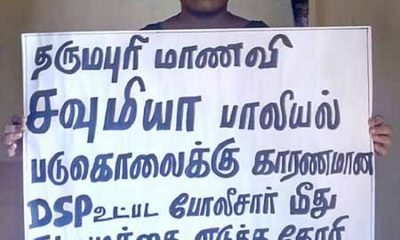 தருமபுரி மாணவி
சவுமியா பாலியல்
படுகொலைக்கு காரணமான
DSP உட்பட போலீசார் மீது
எடுக்க கோரி